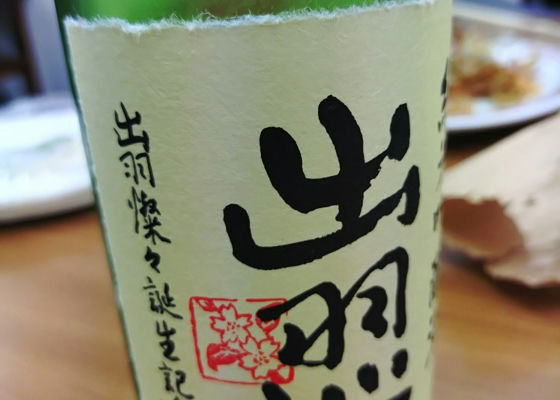 出羽
出羽燦々誕生記